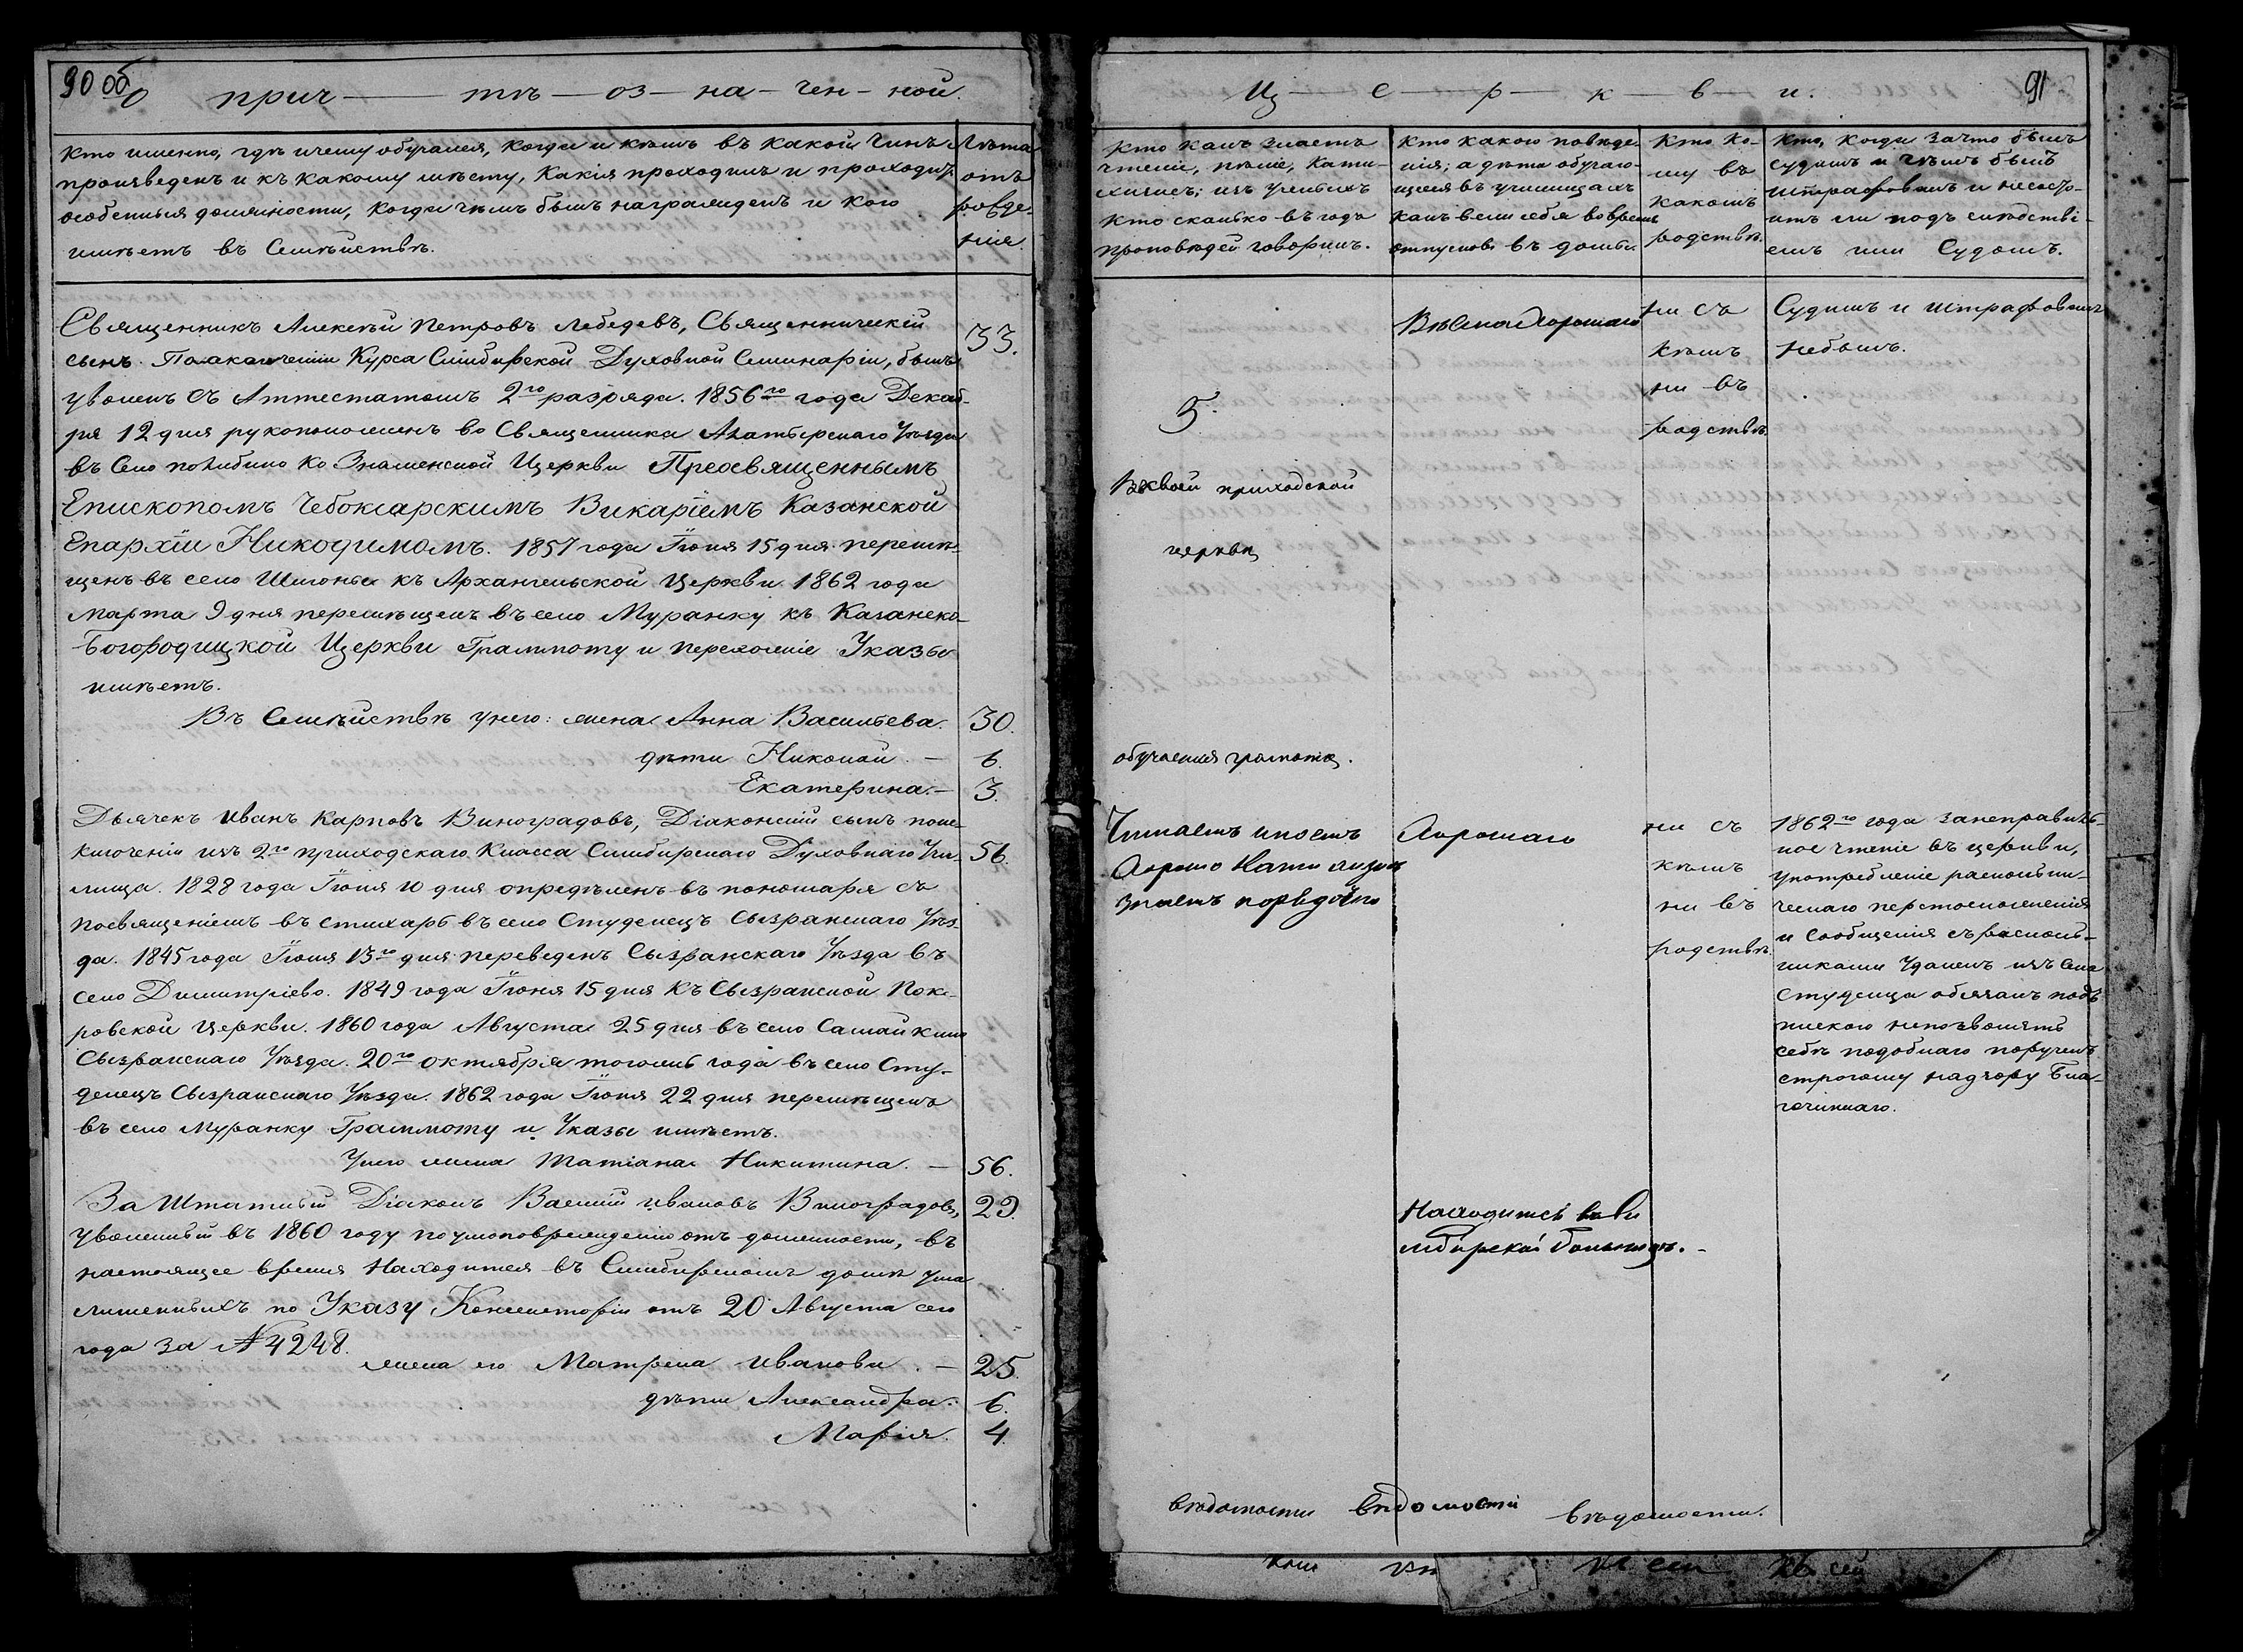 90 об
О прич — тѣ — оз — на — чен — ной.
Кто именно, гдѣ и чему обучался, когда и кѣмъ въ какой Чинъ
произведенъ и къ какому мѣсту, какія проходилъ и проходитъ
особенныя должности, когда чѣмъ былъ награжденъ и кого
имѣетъ въ Семействѣ.
Лѣта
отъ
рожде-
нія.
Священникъ Алексѣй Петровъ Лебедевъ, Священническій
сынъ. По окончаніи Курса Симбирской Духовной Семинаріи, былъ
уволенъ съ Аттестатомъ 2го разряда. 1856го года Декаб-
ря 12 дня рукоположенъ во Священника Алатырскаго Уѣзда
въ Село ко Знаменской Церкви Преосвященнымъ
Епископомъ Чебоксарскимъ Викаріемъ Казанской
Епархіи Никодимомъ. 1857 года Іюня 15 дня перемѣ-
щенъ въ село Шигоны къ Архангельской Церкви. 1862 года
Марта 9 дня перемѣщенъ въ село Муранку къ Казанско-
Богородицкой Церкви Граммоту и Указы
имѣетъ.
33.
Въ Семѣйствѣ у него: жена Анна Васильева. 30.
дѣти Николай. — 6.
Екатерина. — 3.
Дьячекъ Иванъ Карповъ Виноградовъ, Діаконскій сынъ по ис-
ключеніи изъ 2го приходскаго Класса Симбирскаго Духовнаго Учи- 56.
лища. 1828 года Іюня 10 дня опредѣленъ въ пономаря съ
посвященіемъ въ стихарь въ село Студенецъ Сызранскаго Уѣз-
да. 1845 года Іюня 13го дня переведенъ Сызранскаго Уѣзда въ
село Димитріево. 1849 года Іюня 15 дня Къ Сызранской Пок-
ровской Церкви. 1860 года Августа 25 дня въ село Самайкино
Сызранскаго Уѣзда. 20го октября тогожъ года въ село Сту-
денецъ Сызранскаго Уѣзда. 1862 года Іюня 22 дня перемѣщенъ
въ село Муранку Граммоту и Указы имѣетъ.
У него жена Татіана Никитина. — 56.
За Штатный Діаконъ Василій Ивановъ Виноградовъ, 29.
уволенный въ 1860 году по умоповрежденію отъ должности, въ
настоящее время Находится въ Симбирскомъ домѣ ума
лишенныхъ по Указу Консисторіи отъ 20 Августа сего
года за №4248.
жена его Матрена Иванова. — 25.
дѣти Александра. 6.
Марія. 4.
Ц — е — р — к — в — и.
91
Кто какъ знаетъ
чтеніе, пѣніе, Кати-
хизисъ; изъ ученыхъ
Кто сколько въ годъ
проповѣдей говорилъ.
Кто какого поведе-
нія; а дѣти обучаю-
щіеся въ училищахъ
какъ вели себя во время
отпусковъ въ домы.
Кто Ко-
му въ
какомъ
родствѣ.
Кто, когда за что былъ
судимъ и чѣмъ былъ
штрафованъ и не состо-
итъ ли подъ слѣдстві-
емъ или Судомъ.
Вѣсьма Хорошаго
ни съ
кѣмъ
ни въ
родствѣ.
Судимъ и штрафованъ
небылъ.
5.
Въ своей приходской
церкви
обучается грамотѣ.
Читаетъ и поетъ
Хорошо Катихизисъ
знаетъ порядочно
Хорошаго
ни съ
кѣмъ
ни въ
родствѣ.
1862го года за неправиль-
ное чтеніе въ церкви,
употребленіе раскольни-
ческаго перстосложенія
и сообщенія съ расколь-
никами Удаленъ изъ села
Студенца обязанъ подъ
пискою не позволять
себѣ подобнаго порученъ
строгому надзору Бла-
гочиннаго.
Находится въ Си
мбирской больницѣ. -
вѣдомости вѣдомости вѣдомости.